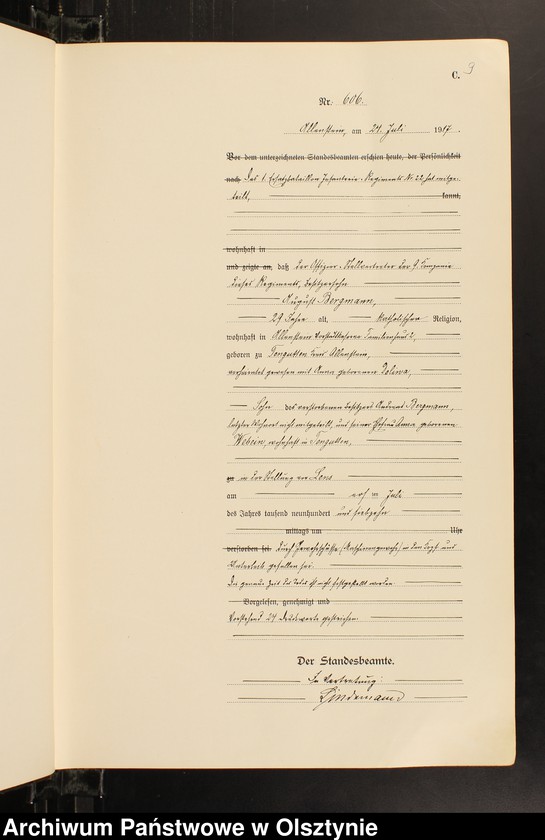 C. 9
Nr. 606.
Allenstein, am 21. Juli 1917.
Vor dem unterzeichneten Standesbeamten erschien heute, der Persönlichkeit
nach Das 1. Ersatzbataillon Infanterie-Regiments Nr. 22 hat mitge-
teilt, kannt,
wohnhaft in
und zeigte an, daß der Offizier-Stellvertreter der 9. Kompanie
dieses Regiments, Besitzersohn
August Bergmann,
29 Jahre alt, katholischer Religion,
wohnhaft in Allenstein 2,
geboren zu Tengutten Kreis Allenstein,
verheiratet gewesen mit Anna geborenen
Sohn des verstorbenen Besitzers Andreas Bergmann,
letzter Wohnort nicht mitgeteilt, und seiner Ehefrau Anna geborenen
wohnhaft in Tengutten,
in der Stellung vor Lens
am Juli
des Jahres tausend neunhundert und siebzehn
mittags um Uhr
verstorben sei. durch in den Kopf und
Unterleib gefallen sei.
Die genaue Zeit des Todes ist nicht festgestellt worden
Vorgelesen, genehmigt und
Vorstehend 24 Druckworte gestrichen.
Der Standesbeamte.
In Vertretung:
Lindemann
Archiwum Państwowe w Olsztynie